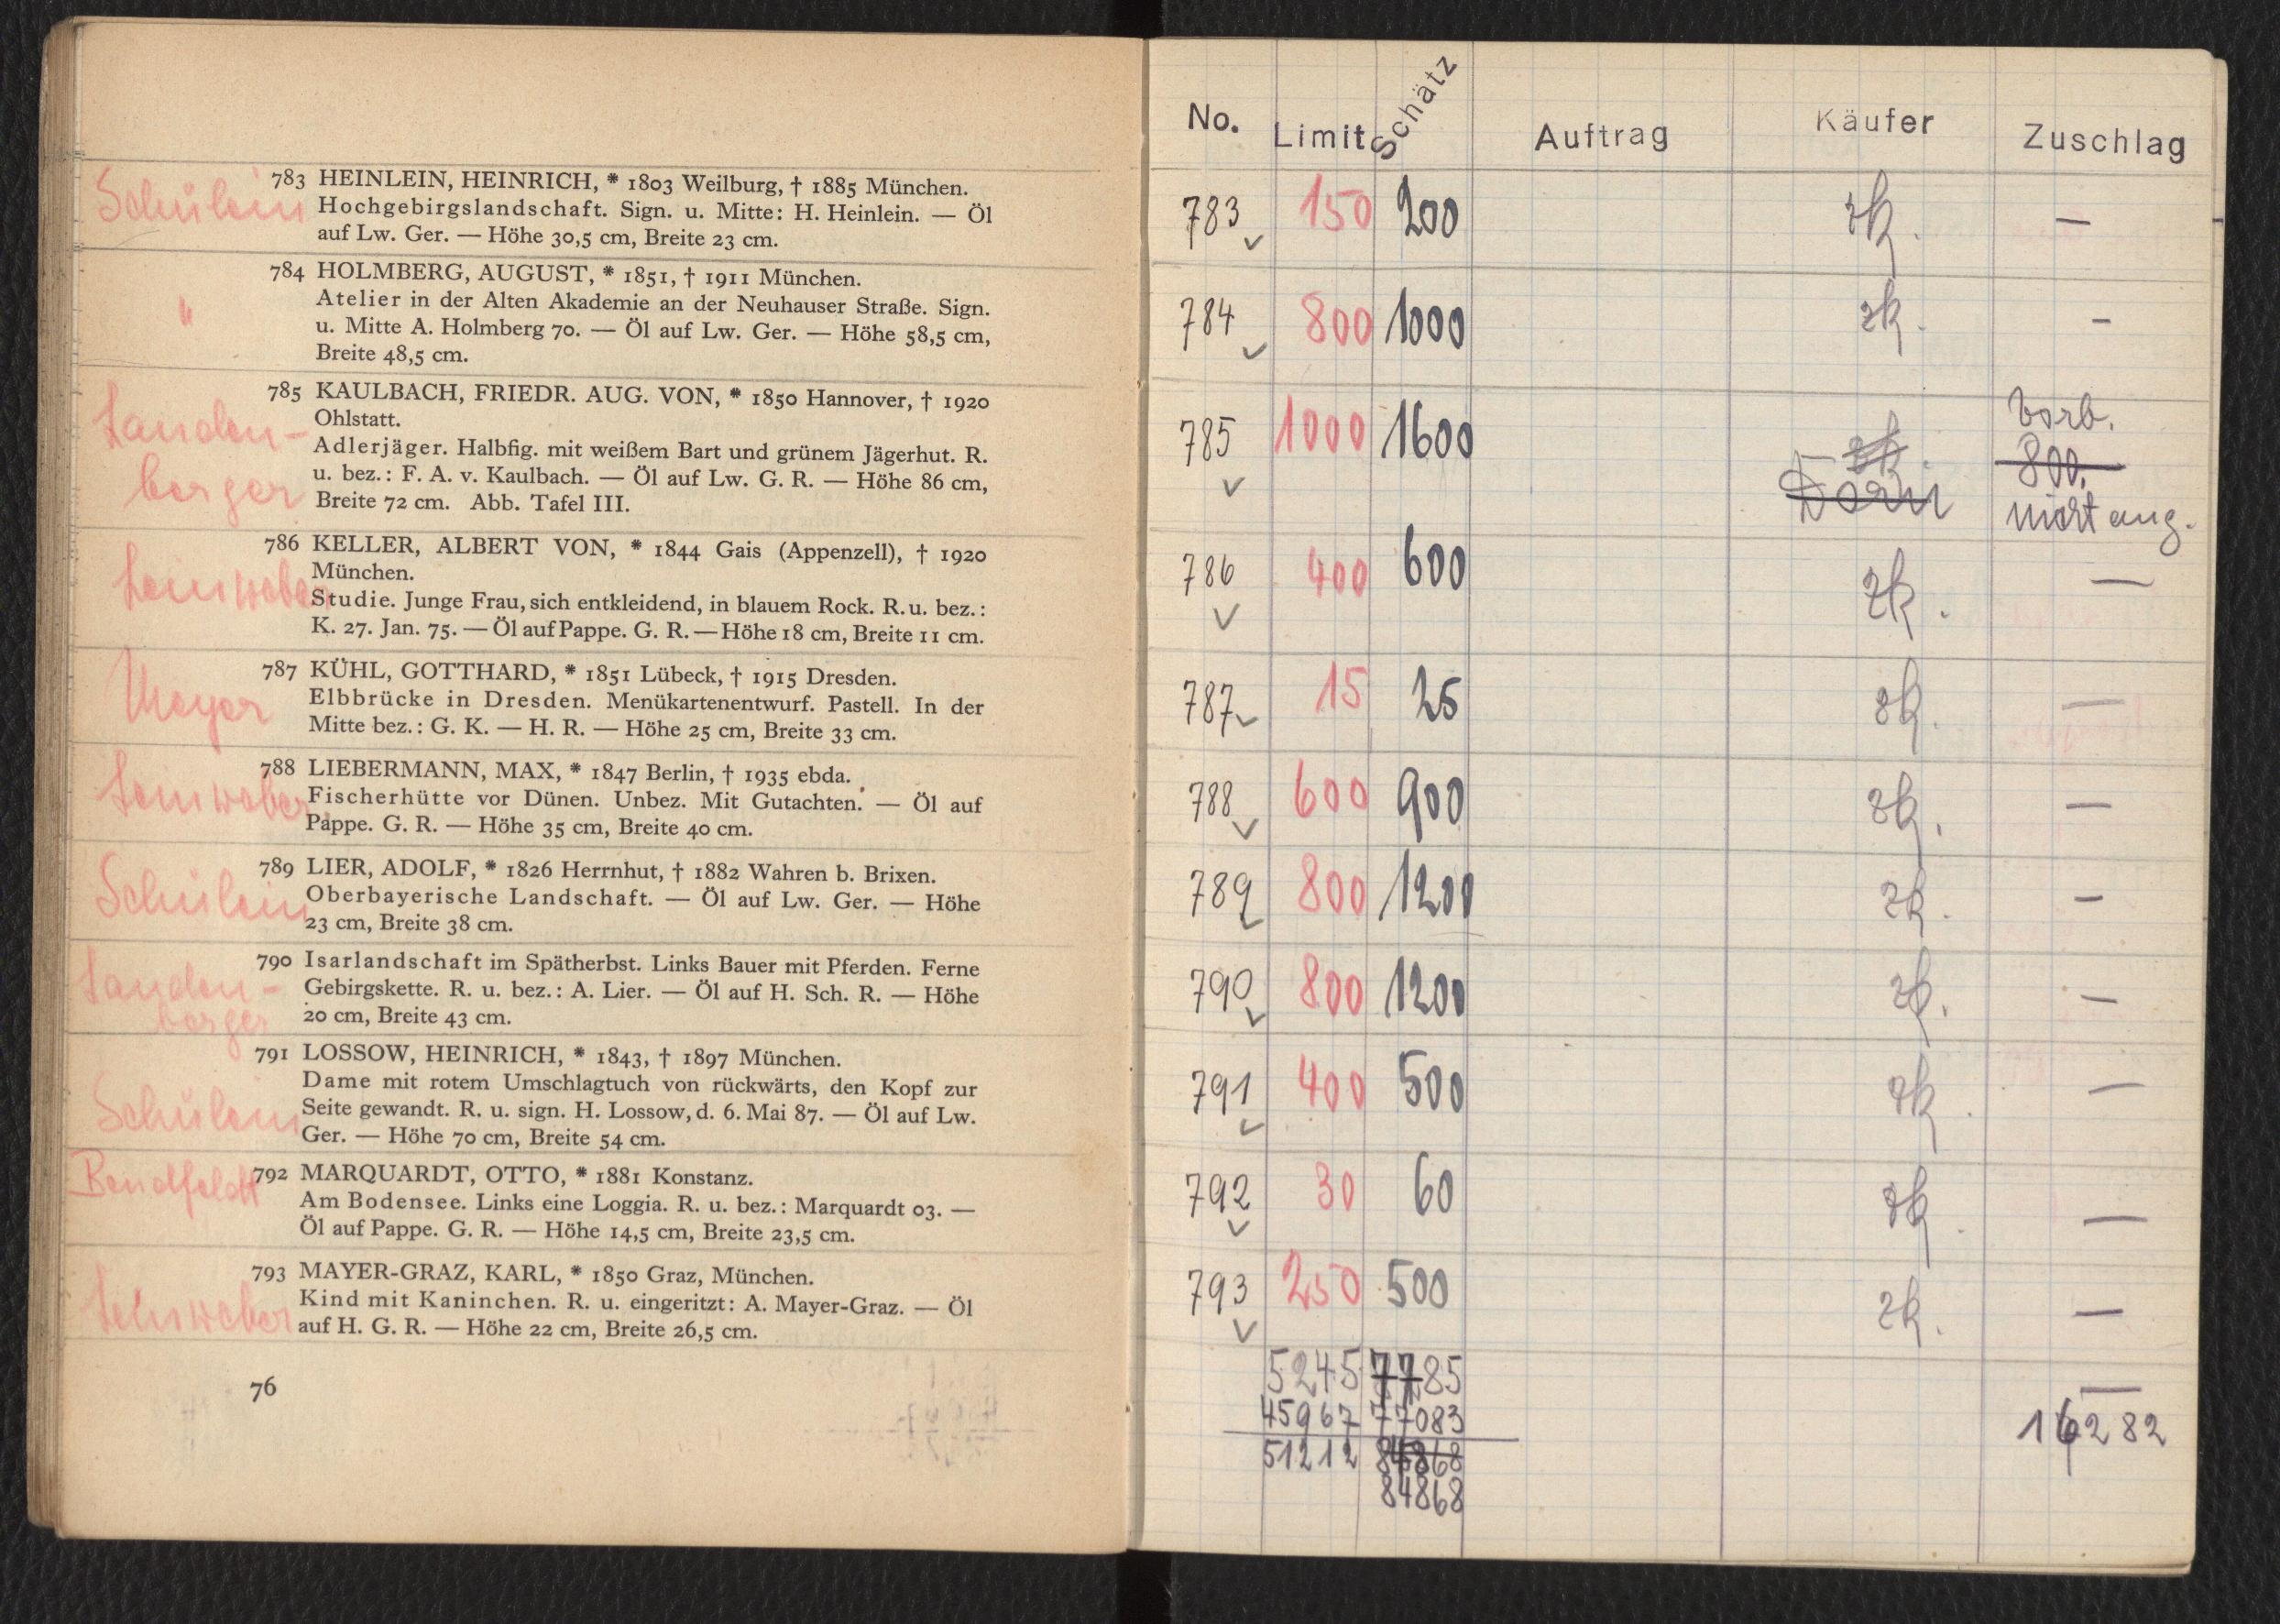 Schülein
783 HEINLEIN, HEINRICH, * 1803 Weilburg, † 1885 München.
Hochgebirgslandschaft. Sign. u. Mitte: H. Heinlein. — Öl
auf Lw. Ger. — Höhe 30,5 cm, Breite 23 cm.
"
784 HOLMBERG, AUGUST, * 1851, † 1911 München.
Atelier in der Alten Akademie an der Neuhauser Straße. Sign.
u. Mitte A. Holmberg 70. — Öl auf Lw. Ger. — Höhe 58,5 cm,
Breite 48,5 cm.
Landen-
berger
785 KAULBACH, FRIEDR. AUG. VON, * 1850 Hannover, † 1920
Ohlstatt.
Adlerjäger. Halbfig. mit weißem Bart und grünem Jägerhut. R.
u. bez.: F. A. v. Kaulbach. — Öl auf Lw. G. R. — Höhe 86 cm,
Breite 72 cm. Abb. Tafel III.
Leinweber
786 KELLER, ALBERT VON, * 1844 Gais (Appenzell), † 1920
München.
Studie. Junge Frau, sich entkleidend, in blauem Rock. R. u. bez.:
K. 27. Jan. 75. — Öl auf Pappe. G. R. — Höhe 18 cm, Breite 11 cm.
Meyer
787 KÜHL, GOTTHARD, * 1851 Lübeck, † 1915 Dresden.
Elbbrücke in Dresden. Menükartenentwurf. Pastell. In der
Mitte bez.: G. K. — H. R. — Höhe 25 cm, Breite 33 cm.
Leinweber
788 LIEBERMANN, MAX, * 1847 Berlin, † 1935 ebda.
Fischerhütte vor Dünen. Unbez. Mit Gutachten. — Öl auf
Pappe. G. R. — Höhe 35 cm, Breite 40 cm.
Schülein
789 LIER, ADOLF, * 1826 Herrnhut, † 1882 Wahren b. Brixen.
Oberbayerische Landschaft. — Öl auf Lw. Ger. — Höhe
23 cm, Breite 38 cm.
Landen-
berger
790 Isarlandschaft im Spätherbst. Links Bauer mit Pferden. Ferne
Gebirgskette. R. u. bez.: A. Lier. — Öl auf H. Sch. R. — Höhe
20 cm, Breite 43 cm.
Schülein
791 LOSSOW, HEINRICH, * 1843, † 1897 München.
Dame mit rotem Umschlagtuch von rückwärts, den Kopf zur
Seite gewandt. R. u. sign. H. Lossow, d. 6. Mai 87. — Öl auf Lw.
Ger. — Höhe 70 cm, Breite 54 cm.
Bendfeldt
792 MARQUARDT, OTTO, * 1881 Konstanz.
Am Bodensee. Links eine Loggia. R. u. bez.: Marquardt 03. —
Öl auf Pappe. G. R. — Höhe 14,5 cm, Breite 23,5 cm.
Leinweber
793 MAYER-GRAZ, KARL, * 1850 Graz, München.
Kind mit Kaninchen. R. u. eingeritzt: A. Mayer-Graz. — Öl
auf H. G. R. — Höhe 22 cm, Breite 26,5 cm.
76
No. Limit Schätz Auftrag Käufer Zuschlag
783 150 200 zk. —
784 800 1000 zk. —
785 1000 1600 zk. Dorn vorb. 800. nicht ang.
786 400 600 zk. —
787 15 25 zk. —
788 600 900 zk. —
789 800 1200 zk. —
790 800 1200 zk. —
791 400 500 zk. —
792 30 60 zk. —
793 250 500 zk. —
5245 7785
45967 77083 16282
51212 84868
84868